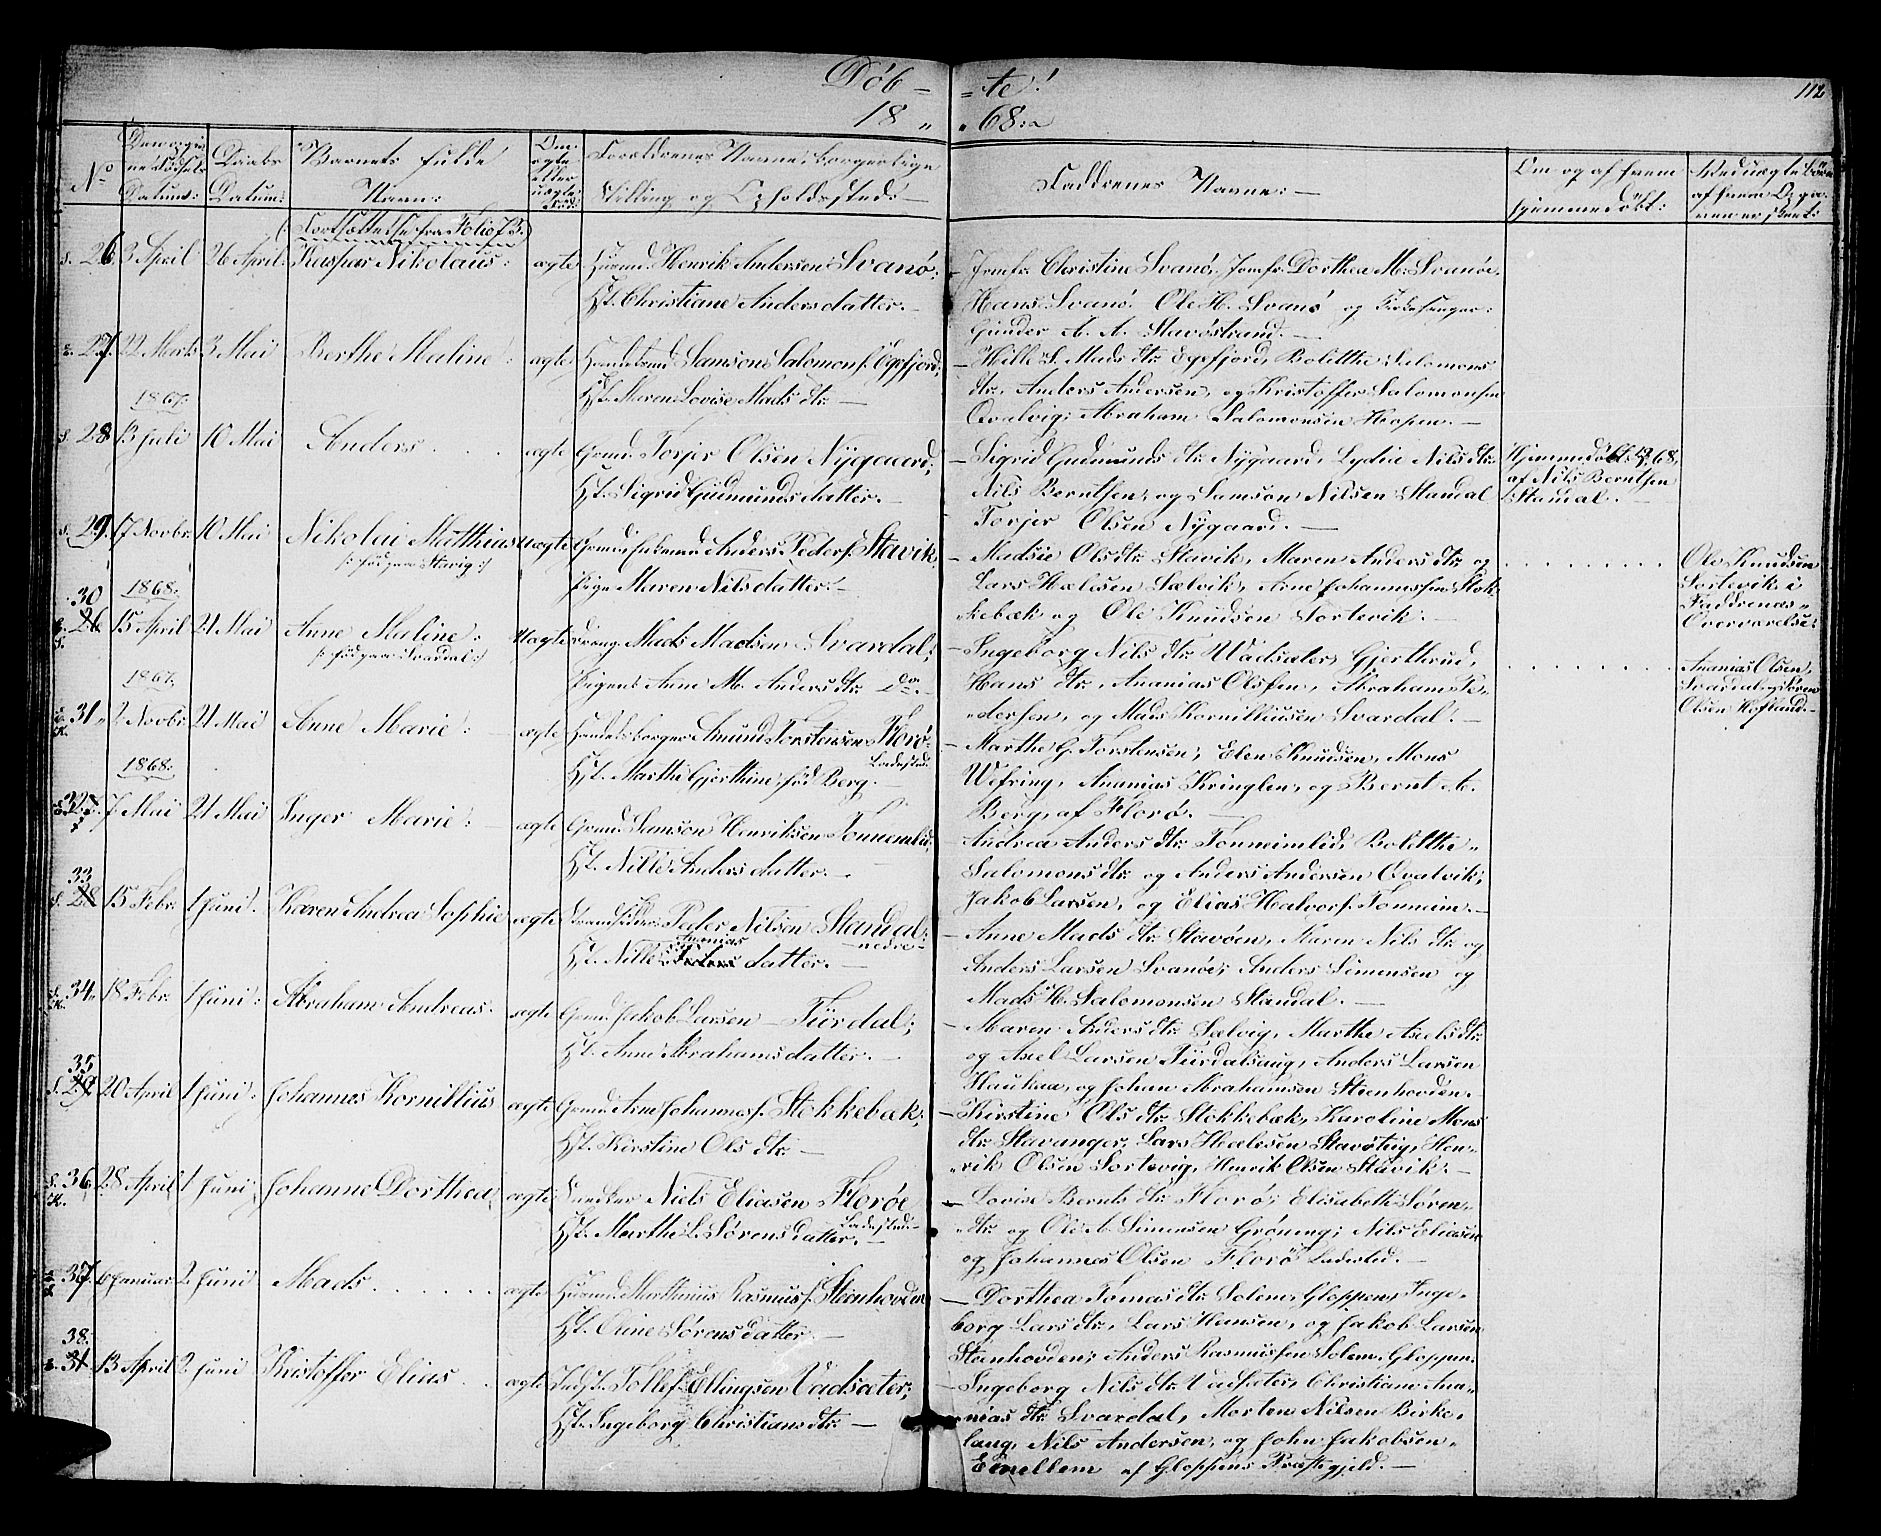 Döb - - te!
18 „ „ 68:
112
No
Datum:
Daabs Datum:
Barnets fulde Navn:
Om ægte eller uægte
Forældrenes Navne: borgerlige Stilling og Opholdssted: —
Faddrenes Navne: —
Om og af hvem hjemmedöbt:
(Fortsættelse fra Folio 73.)
S. 26 3 April 26 April: Kaspar Nikolaus: ægte Huusmd. Henrik Andersen Svanö;
Hst. Christiane Andersdatter. —
— Jomfr. Christine Svanö, Jomfr. Dorthea M. Svanöe,
Hans Svanö, Ole H. Svanö og Kirkesanger:
Ginder A. A. Stavöstrand. —
27. 22 Marts 3 Mai Berthe Maline: ægte Samson Salomons. Egefjord;
Hst. Maren Lovise Mads dtr. —
— Nille S. Mads dtr. Egefjord, Bolette Salomons
dtr., Anders Andersen, og Kristoffer Salomonsen
Qvalvig; Abraham Salomonsen Hopen. —
1867:
S. 28 13 Juli 10 Mai Anders . . . ægte Grmd. Torjer Olsen Nygaard;
Hst. Sigrid Gudmundsdatter. —
— Sigrid Gudmunds dtr. Nygaard, Lydia Nils dtr.
Nils Berntsen, og Samson Nilsen Standal
Torjer Olsen Nygaard. —
Hjemmedöbt 68,
af Nils Berntsen
Standal. —
S. 29. 17 Novbr. 10 Mai Nikolai Matthias Uægte Grmd. Enkemd. Anders Peders. Stavik,
Pige Maren Nilsdatter! —
— Madsie Ols dtr. Stavik, Maren Anders dtr. og
Lars Hælesen Sælvik, Arne Johannessen Stok-
kebæk og Ole Knudsen Sortevik. —
Ole Knudsen
Sortevik i
Faddrenes
Overværelse:
1868:
30 26 15 April 21 Mai Anne Maline: Uægte Dreng Mads Madsen Svardal;
/: född paa Svardal :/
Pigen Anne M. Anders dtr. Do. —
— Ingeborg Nils dtr. Wadsæter, Gjerthrud,
Hans dtr., Ananias Olssen, Abraham Pe-
dersen, og Mads Kornilliusen Svardal! —
Ananias Olsen,
Svardal og Sören
Olsen Höfland. —
1867.
31 2 Novbr. 21 Mai Anne Marie: ægte Handelsborger Amund Torstensen Florö
Ladested:
Hst. Marthe Gjerthine föd Berg. —
— Marthe G. Torstensen; Elen Knudsen, Mons
Wefring, Ananias Kringlen, og Bernt A.
Berg, af Florö. —
1868:
32 7 Mai 21 Mai Inger Marie: — ægte Grmd. Samson Henriksen Tonnemlid;
Hst. Nille Andersdatter. —
Andrea Anders dtr. Tonneimlid, Bolette
Salomons dtr. og Anders Andersen Qvalvik;
Jakob Larsen, og Elias Halvors. Tonneim. —
S. 33 28 15 Febr. 1 Juni. Karen Andrea Sophie ægte Strandsidder Peder Nilsen Standal;
— nedre —
Hst. Nille Ananias datter. —
— Anne Mads dtr. Stavöen, Karen Nils dtr. og
Anders Larsen Svanöe; Anders Simensen og
Mads H. Salomonsen Standal. —
34 18 Febr. 1 Juni: Abraham Andreas. ægte Grmd. Jakob Larsen — Türdal;
Hst. Anne Abrahamsdatter. —
— Maren Anders dtr. Sælvig, Marthe Axels dtr.
og Axel Larsen Türdalsaug, Anders Larsen
Haukaa, og Johan Abrahamsen Steenhovden.
S. 35 29 20 April 1 Juni: Johannes Kornillius ægte Grmd. Arne Johanness. Stokkebæk;
Hst. Kirstine Ols dtr. —
— Kirstine Ols dtr. Stokkebæk, Karoline Mons
dtr. Stavanger, Lars Hælesen Stavöteig, Hen-
rik Olsen Sortevig, Henrik Olsen Stavik. —
36 28 April 1 Juni Johanne Dorthea ægte Snedker Niels Eliasen Floröe
Ladested: —
Hst. Marthe L. Sörensdatter. —
— Lovise Bernts dtr. Florö; Elisabeth Sören-
dtr. og Ole A. Simensen Gröning; Nils Eliasen
og Johannes Olsen Florö Ladested. —
37. 6 Januar 2 Juni Mads . . . . . . ægte Huusmd. Marthinus Rasmuss. Steenhovden
Hst. Oline Sörensdatter. —
— Dorthea Tomas dtr. Solem, Gloppen, Inge-
borg Lars dtr., Lars Hansen, og Jakob Larsen
Steenhovden; Anders Rasmussen Solem, Gloppen.
38. 31 13 April 2 Juni Kristoffer Elias . . ægte Inds. Tollef Ellingsen Vadsæter;
Hst. Ingeborg Christians dtr. —
— Ingeborg Nils dtr. Vadsæter, Christiane Ana-
nias dtr. Svardal, Morten Nilsen Birke-
laug, Nils Andersen, og John Jakobsen
Eimellem af Gloppens Præstegjeld. —